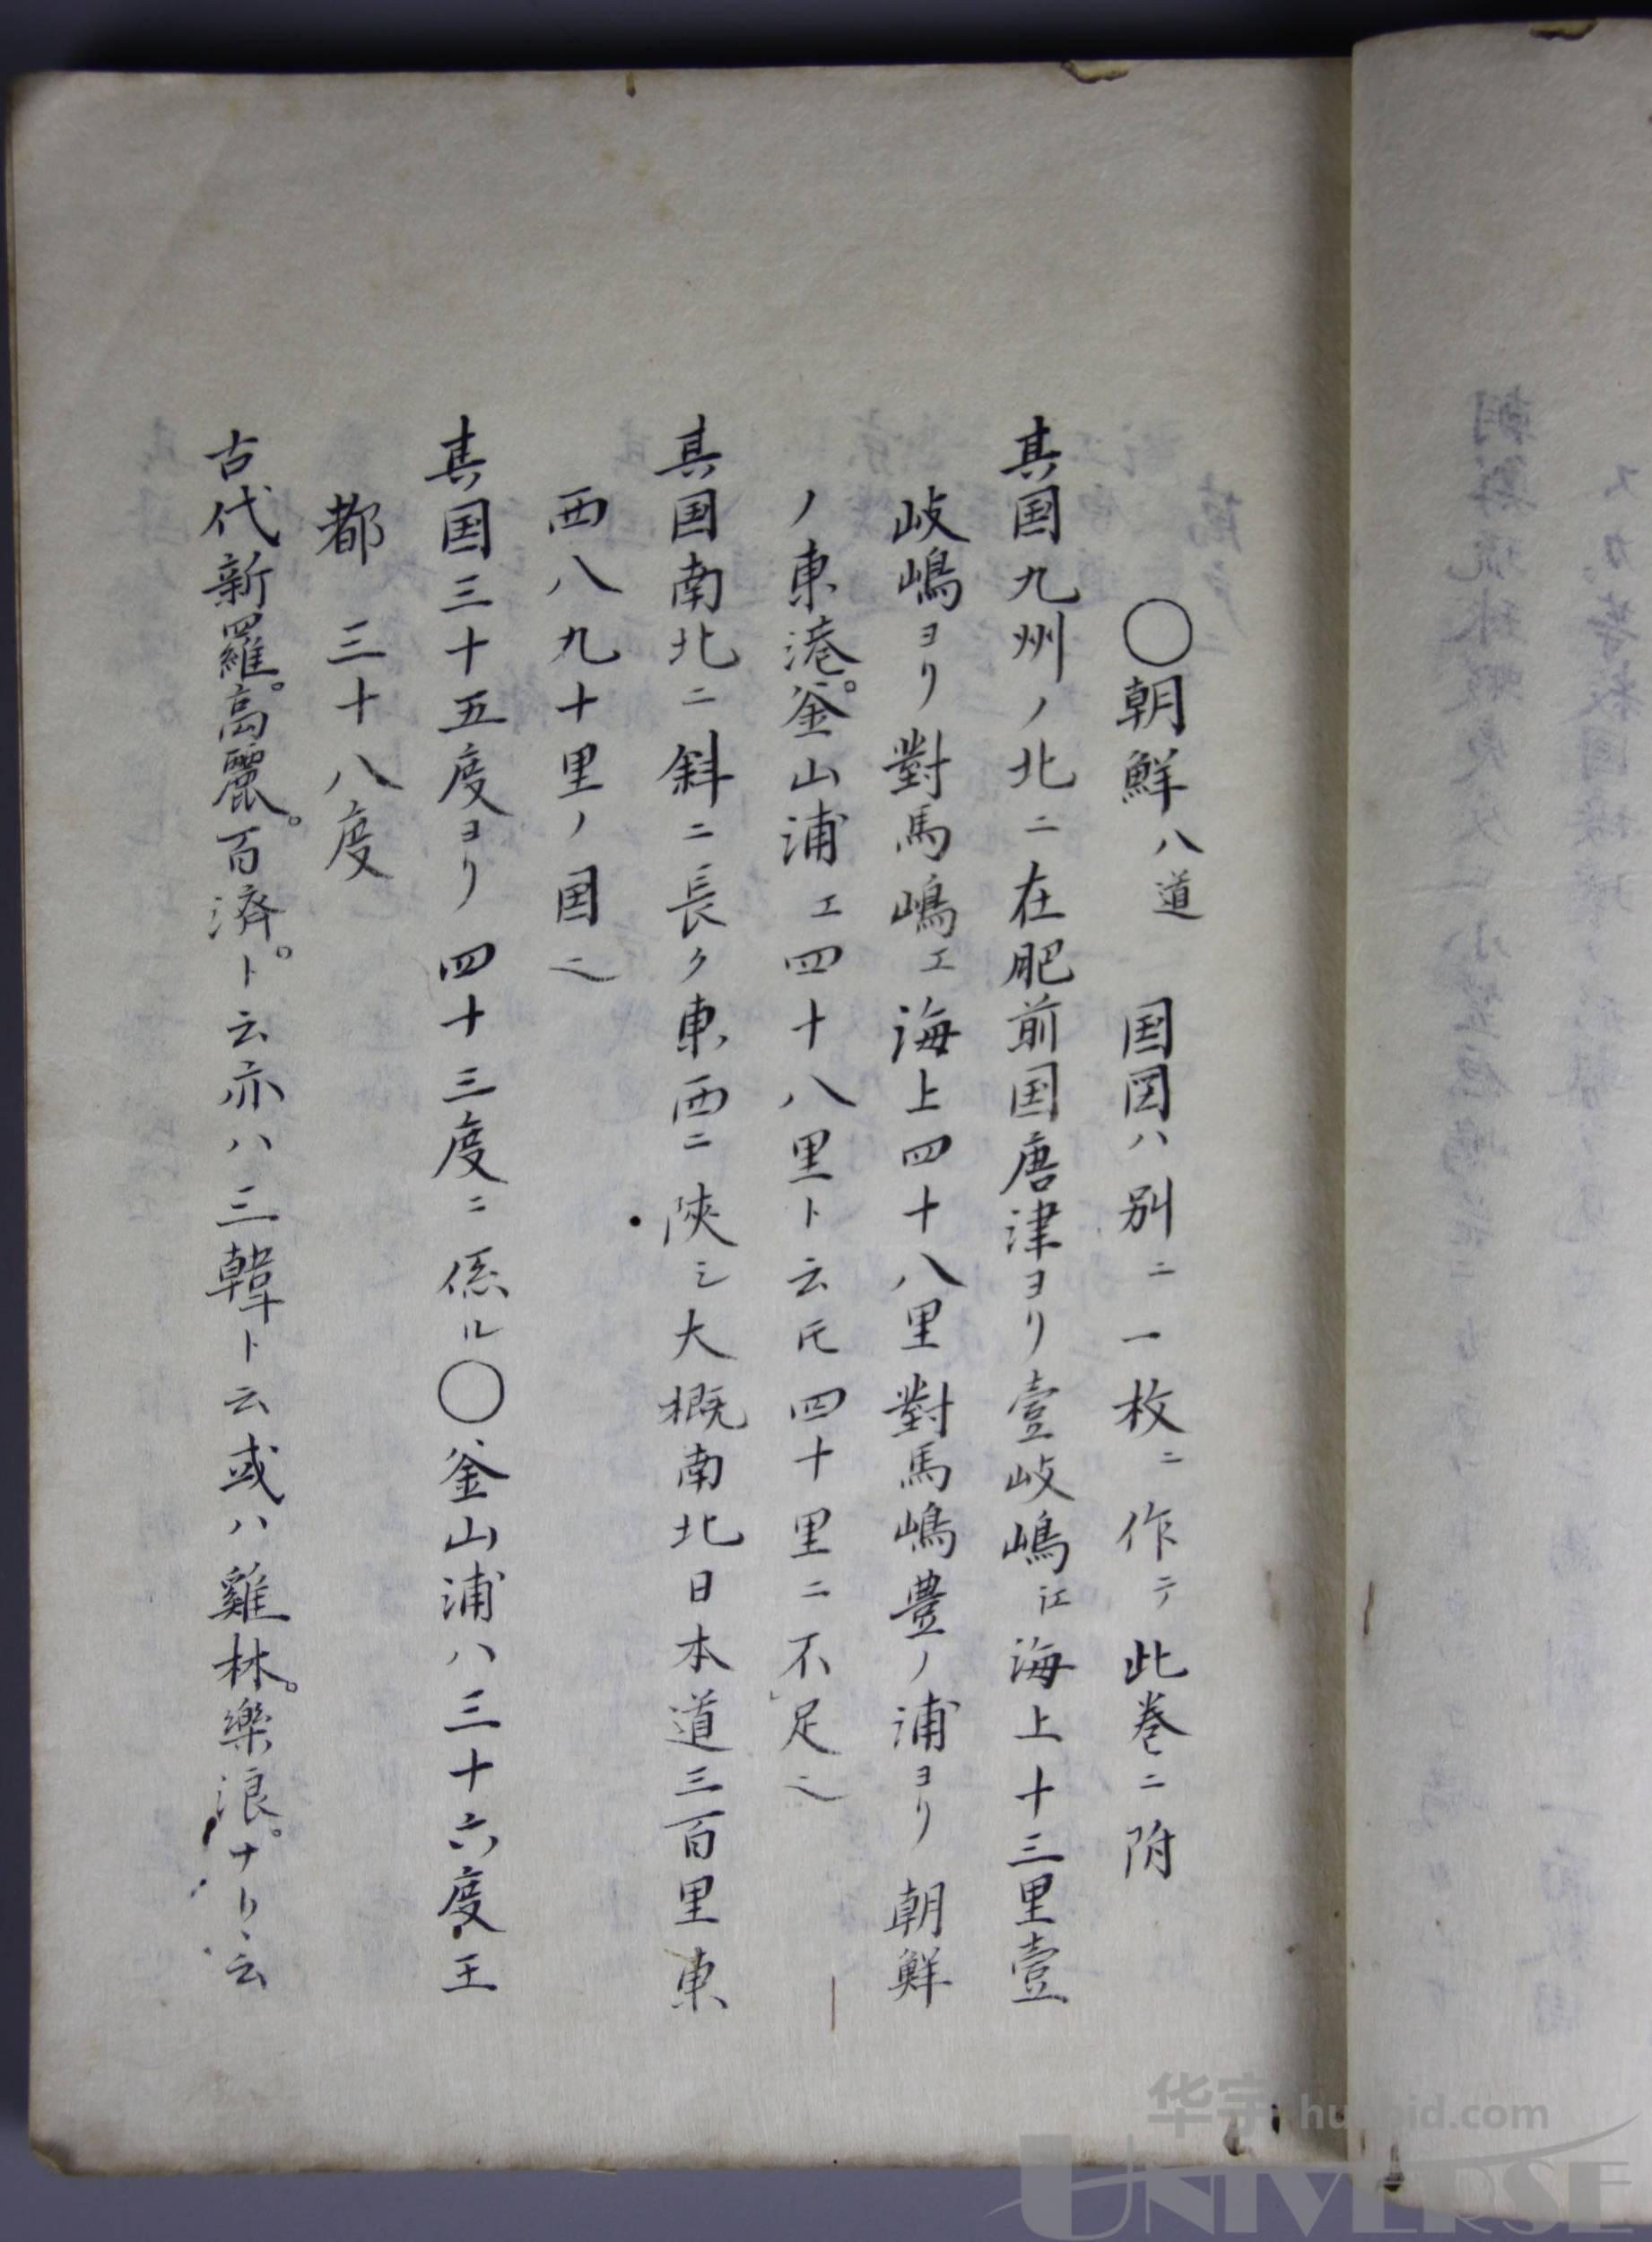 〇朝鮮八道　国図ハ別ニ一枚ニ作テ此巻ニ附
其国九州ノ北ニ在肥前国唐津ヨリ壹岐嶋江海上十三里壹
岐嶋ヨリ對馬嶋エ海上四十八里對馬嶋豊ノ浦ヨリ朝鮮
ノ東港。釜山浦エ四十八里ト云𪜈四十里ニ不足也
其国南北ニ斜ニ長ク東西ニ陜シ大概南北日本道三百里東
西八九十里ノ国也
其国三十五度ヨリ四十三度ニ係ル〇釜山浦ハ三十六度王
都　三十八度
古代新羅。高麗。百済。ト云亦ハ三韓ト云或ハ雞林。樂浪。ナリト云
华宇 huabid.com
UNIVERSE